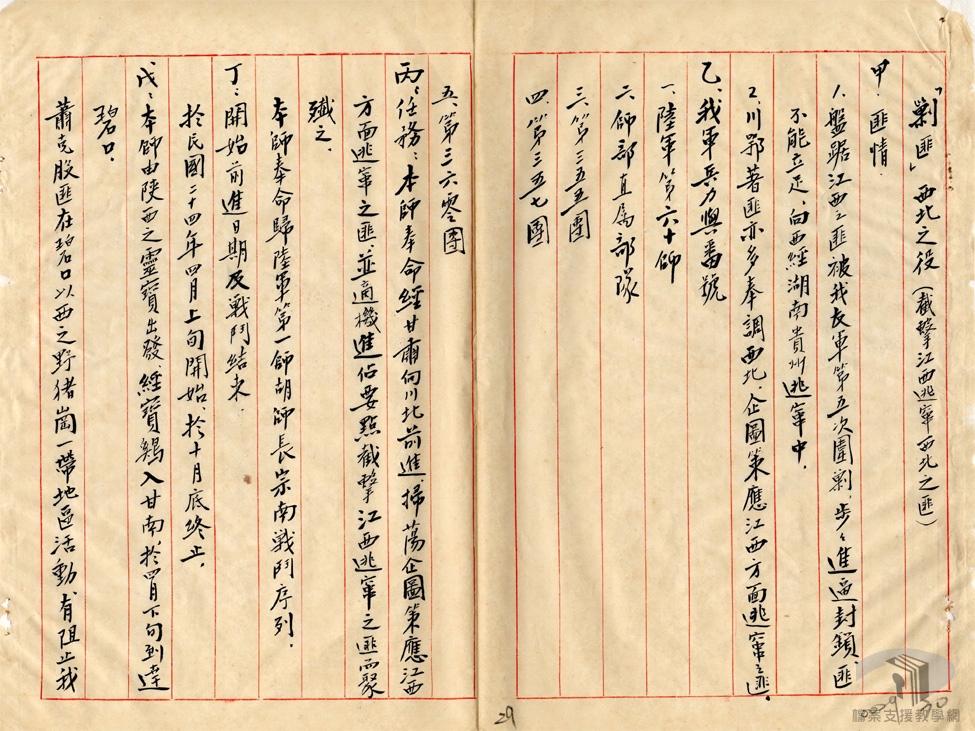 「剿匪」西北之役(截擊江西逃竄西北之匪)
甲、匪情.
1.盤踞江西之匪被我長軍第五次圍剿,步々進逼封鎖,匪
不能立足,向西經湖南貴州逃竄中.
2.川鄂著匪亦多奉調西北、企圖策應江西方面逃竄之匪.
乙、我軍兵力與番號
一、陸軍第六十師
二、師部直屬部隊
三、第三五五團
四、第三五七團
五、第三六零團
丙、任務:本師奉命經甘肅向川北前進,掃蕩企圖策應江西
方面逃竄之匪、並適機進佔要點截擊江西逃竄之匪而聚
殲之.
本師奉命歸陸軍第一師胡師長宗南戰鬥序列.
丁:開始前進日期及戰鬥結束.
於民國二十四年四月上旬開始、於十月底終止.
戊:本師由陝西之靈寶出發、經寶鷄入甘南,於四月下旬到達
碧口.
蕭克股匪在碧口以西之野猪崗一帶地區活動,有阻止我
29
檔案支援教學網